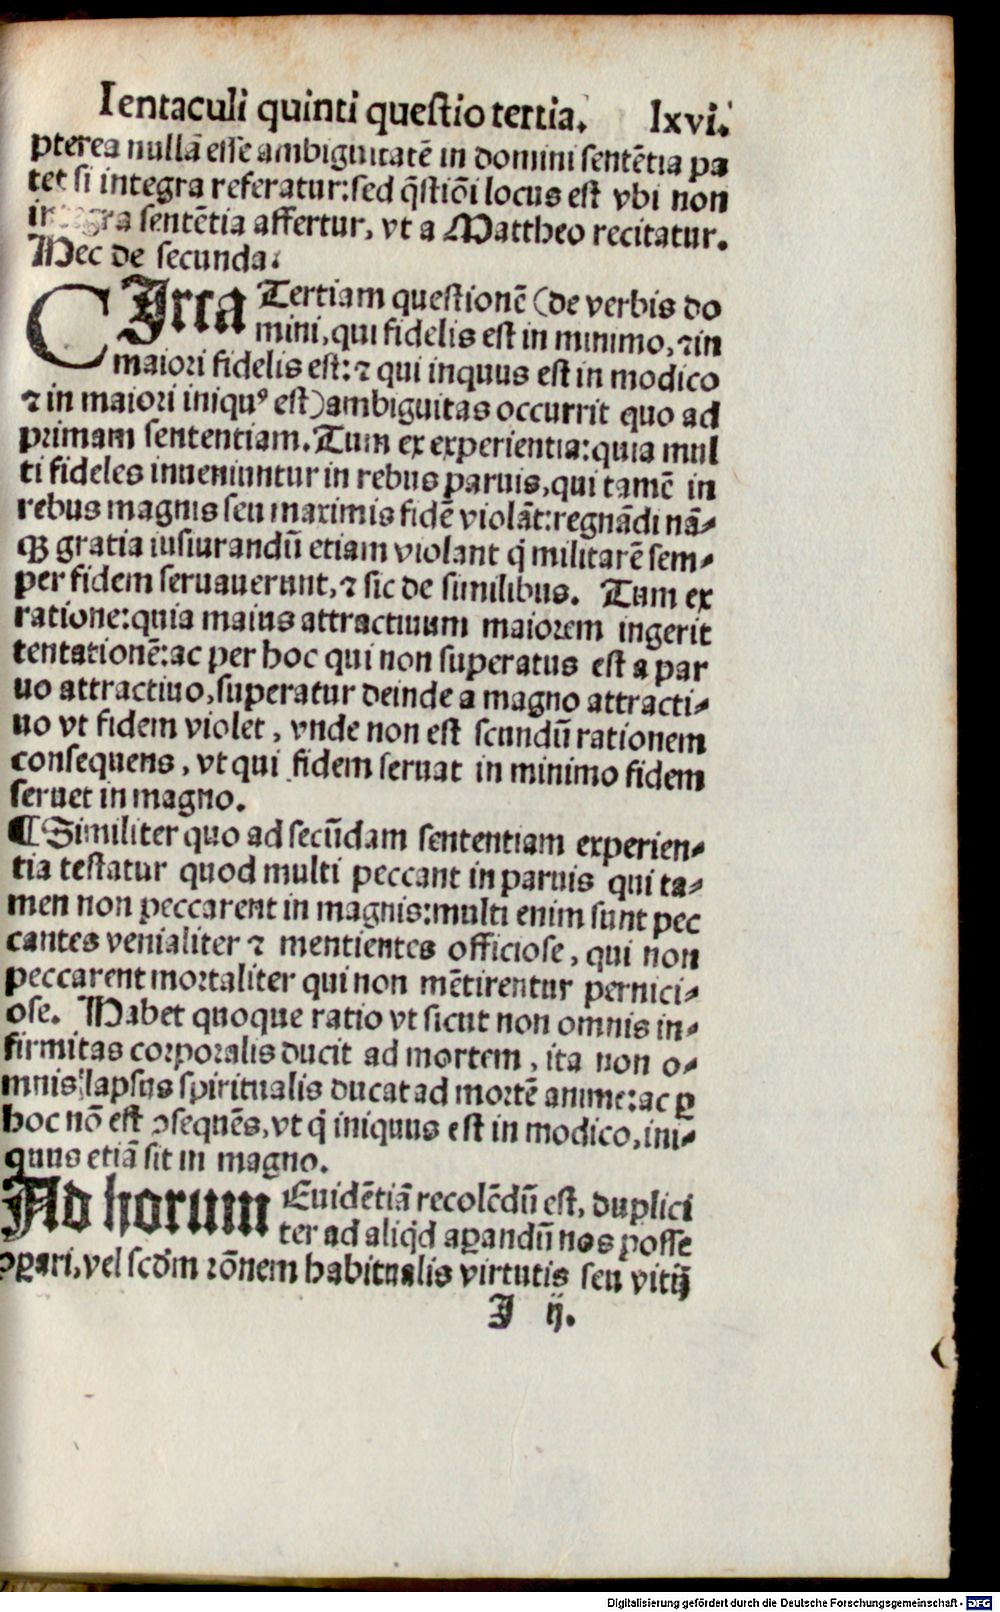 Ientaculi quinti questio tertia. lxvi.
pterea nullā esse ambiguitatē in domini sentētia pa
tet si integra referatur: sed q̄stiōi locus est vbi non
integra sentētia affertur, vt a Mattheo recitatur.
Hec de secunda.
CIrca Tertiam questionē (de verbis do
mini, qui fidelis est in minimo, ⁊ in
maiori fidelis est: ⁊ qui iniquus est in modico
⁊ in maiori iniquꝰ est) ambiguitas occurrit quo ad
primam sententiam. Tum ex experientia: quia mul
ti fideles inueniuntur in rebus paruis, qui tamē in
rebus magnis seu maximis fidē violāt: regnādi nā⸗
qꝫ gratia iusiurandū etiam violant q̇ militarē sem⸗
per fidem seruauerunt, ⁊ sic de similibus. Tum ex
ratione: quia maius attractiuum maiorem ingerit
tentationē: ac per hoc qui non superatus est a par
uo attractiuo, superatur deinde a magno attracti⸗
uo vt fidem violet, vnde non est scundū rationem
consequens, vt qui fidem seruat in minimo fidem
seruet in magno.
¶ Similiter quo ad secūdam sententiam experien⸗
tia testatur quod multi peccant in paruis qui ta⸗
men non peccarent in magnis: multi enim sunt pec
cantes venialiter ⁊ mentientes officiose, qui non
peccarent mortaliter qui non mētirentur pernici⸗
ose. Habet quoque ratio vt sicut non omnis in⸗
firmitas corporalis ducit ad mortem, ita non o⸗
mnis lapsus spiritualis ducat ad mortē anime: ac ꝑ
hoc nō est ꝯsequēs, vt q̇ iniquus est in modico, ini⸗
quus etiā sit in magno.
Ad horum Euidētiā recolēdū est, duplici
ter ad aliq̇d aꝑandū nos posse
oꝑari, vel scd̄m rōnem habitualis virtutis seu vitij
I ij.
Digitalisierung gefördert durch die Deutsche Forschungsgemeinschaft - DFG